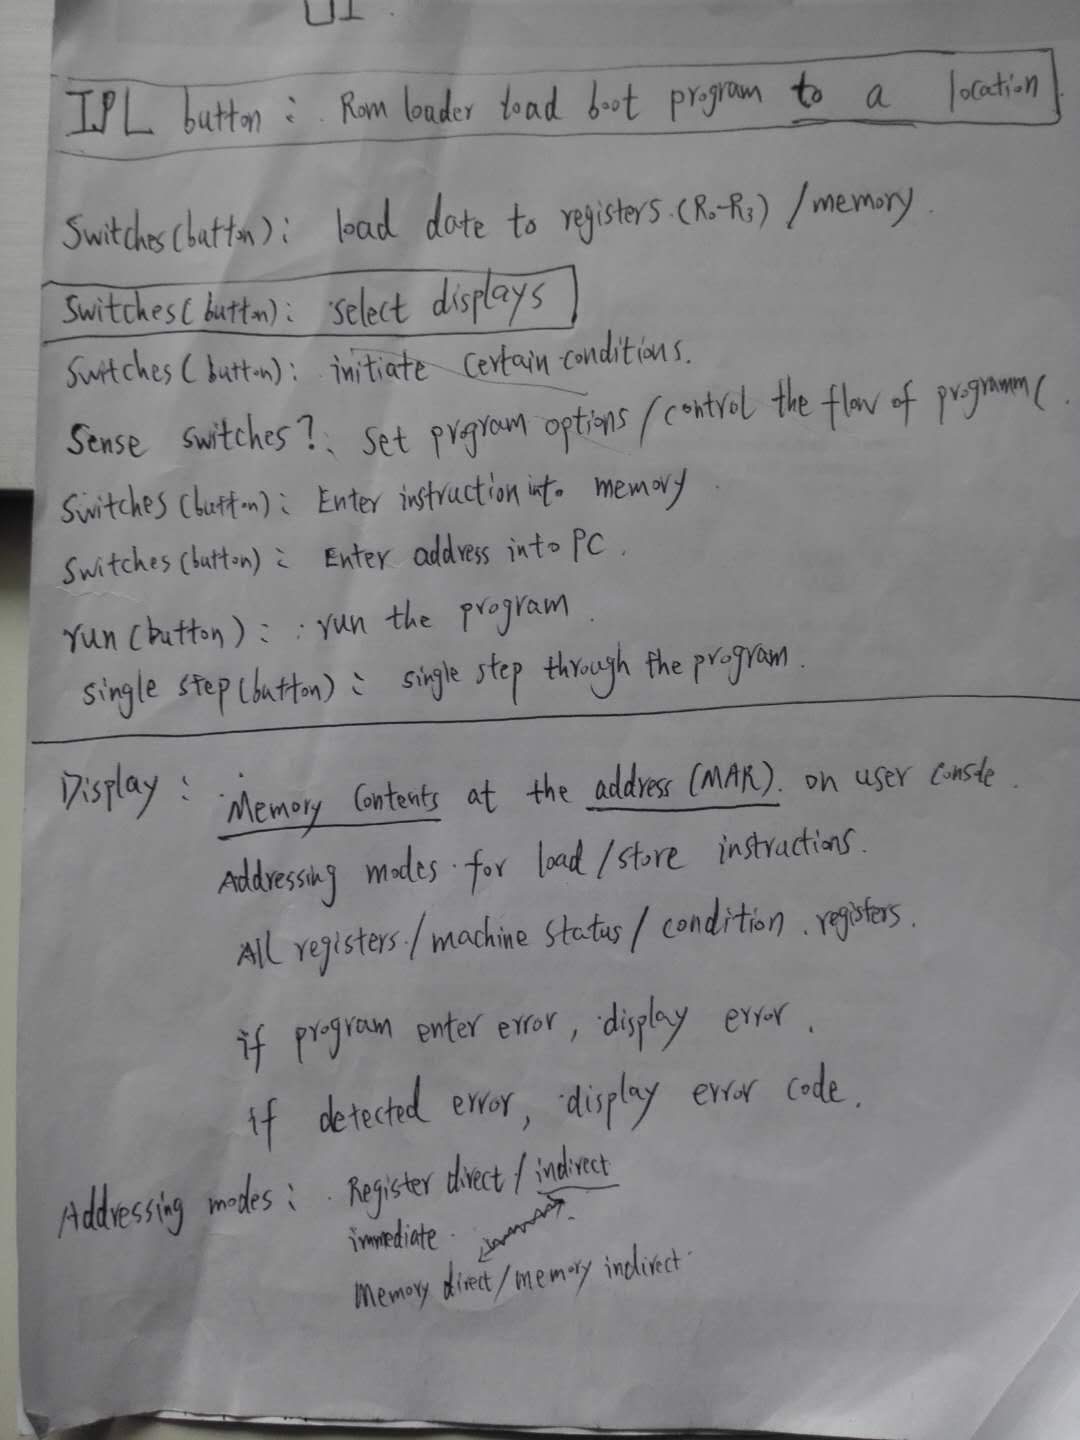 UI
IPL button : Rom loader load boot program to a location
Switches (button) : load date to registers (R0-R3) / memory.
Switches (button) : select displays
Switches (button) : initiate certain conditions.
Sense switches? : Set program options / control the flow of
Switches (button) : Enter instruction into memory
Switches (button) : Enter address into PC.
run (button) : run the program.
single step (button) : single step through the program.
Display : Memory Contents at the address (MAR). on user
Addressing modes for load / store instructions.
All registers / machine status / condition registers.
if program enter error, display error.
if detected error, display error code.
Addressing modes : Register direct / indirect
immediate
Memory direct / memory indirect